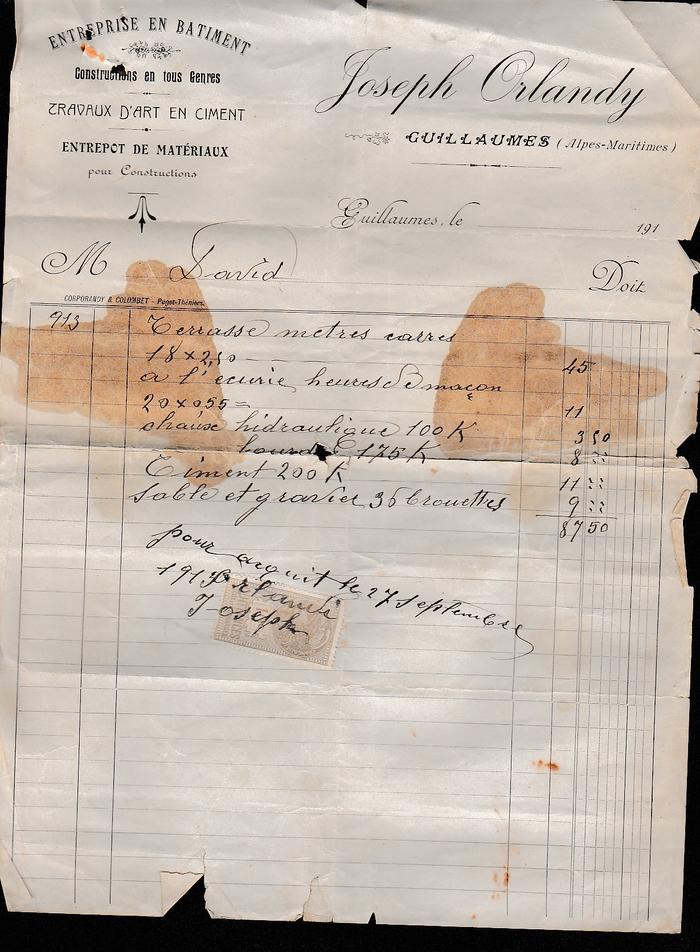 ENTREPRISE EN BATIMENT
Constructions en tous Genres
TRAVAUX D'ART EN CIMENT
ENTREPOT DE MATÉRIAUX
pour Constructions
Joseph Orlandy
GUILLAUMES (Alpes-Maritimes)
Guillaumes, le 191
M David Doit
CORPORANDY & COLOMBET - Puget-Théniers.
913 Terrasse metres carres
18 x 2,50 45
a l'ecurie heures de maçon
20 x 055 = 11
chause hidraulique 100 K 3 50
lourde 175 K 8 "
Ciment 200 K 11 "
sable et gravier 36 brouettes 9 "
87 50
pour aquit le 27 septembre
1913 Orlandi
Joseph